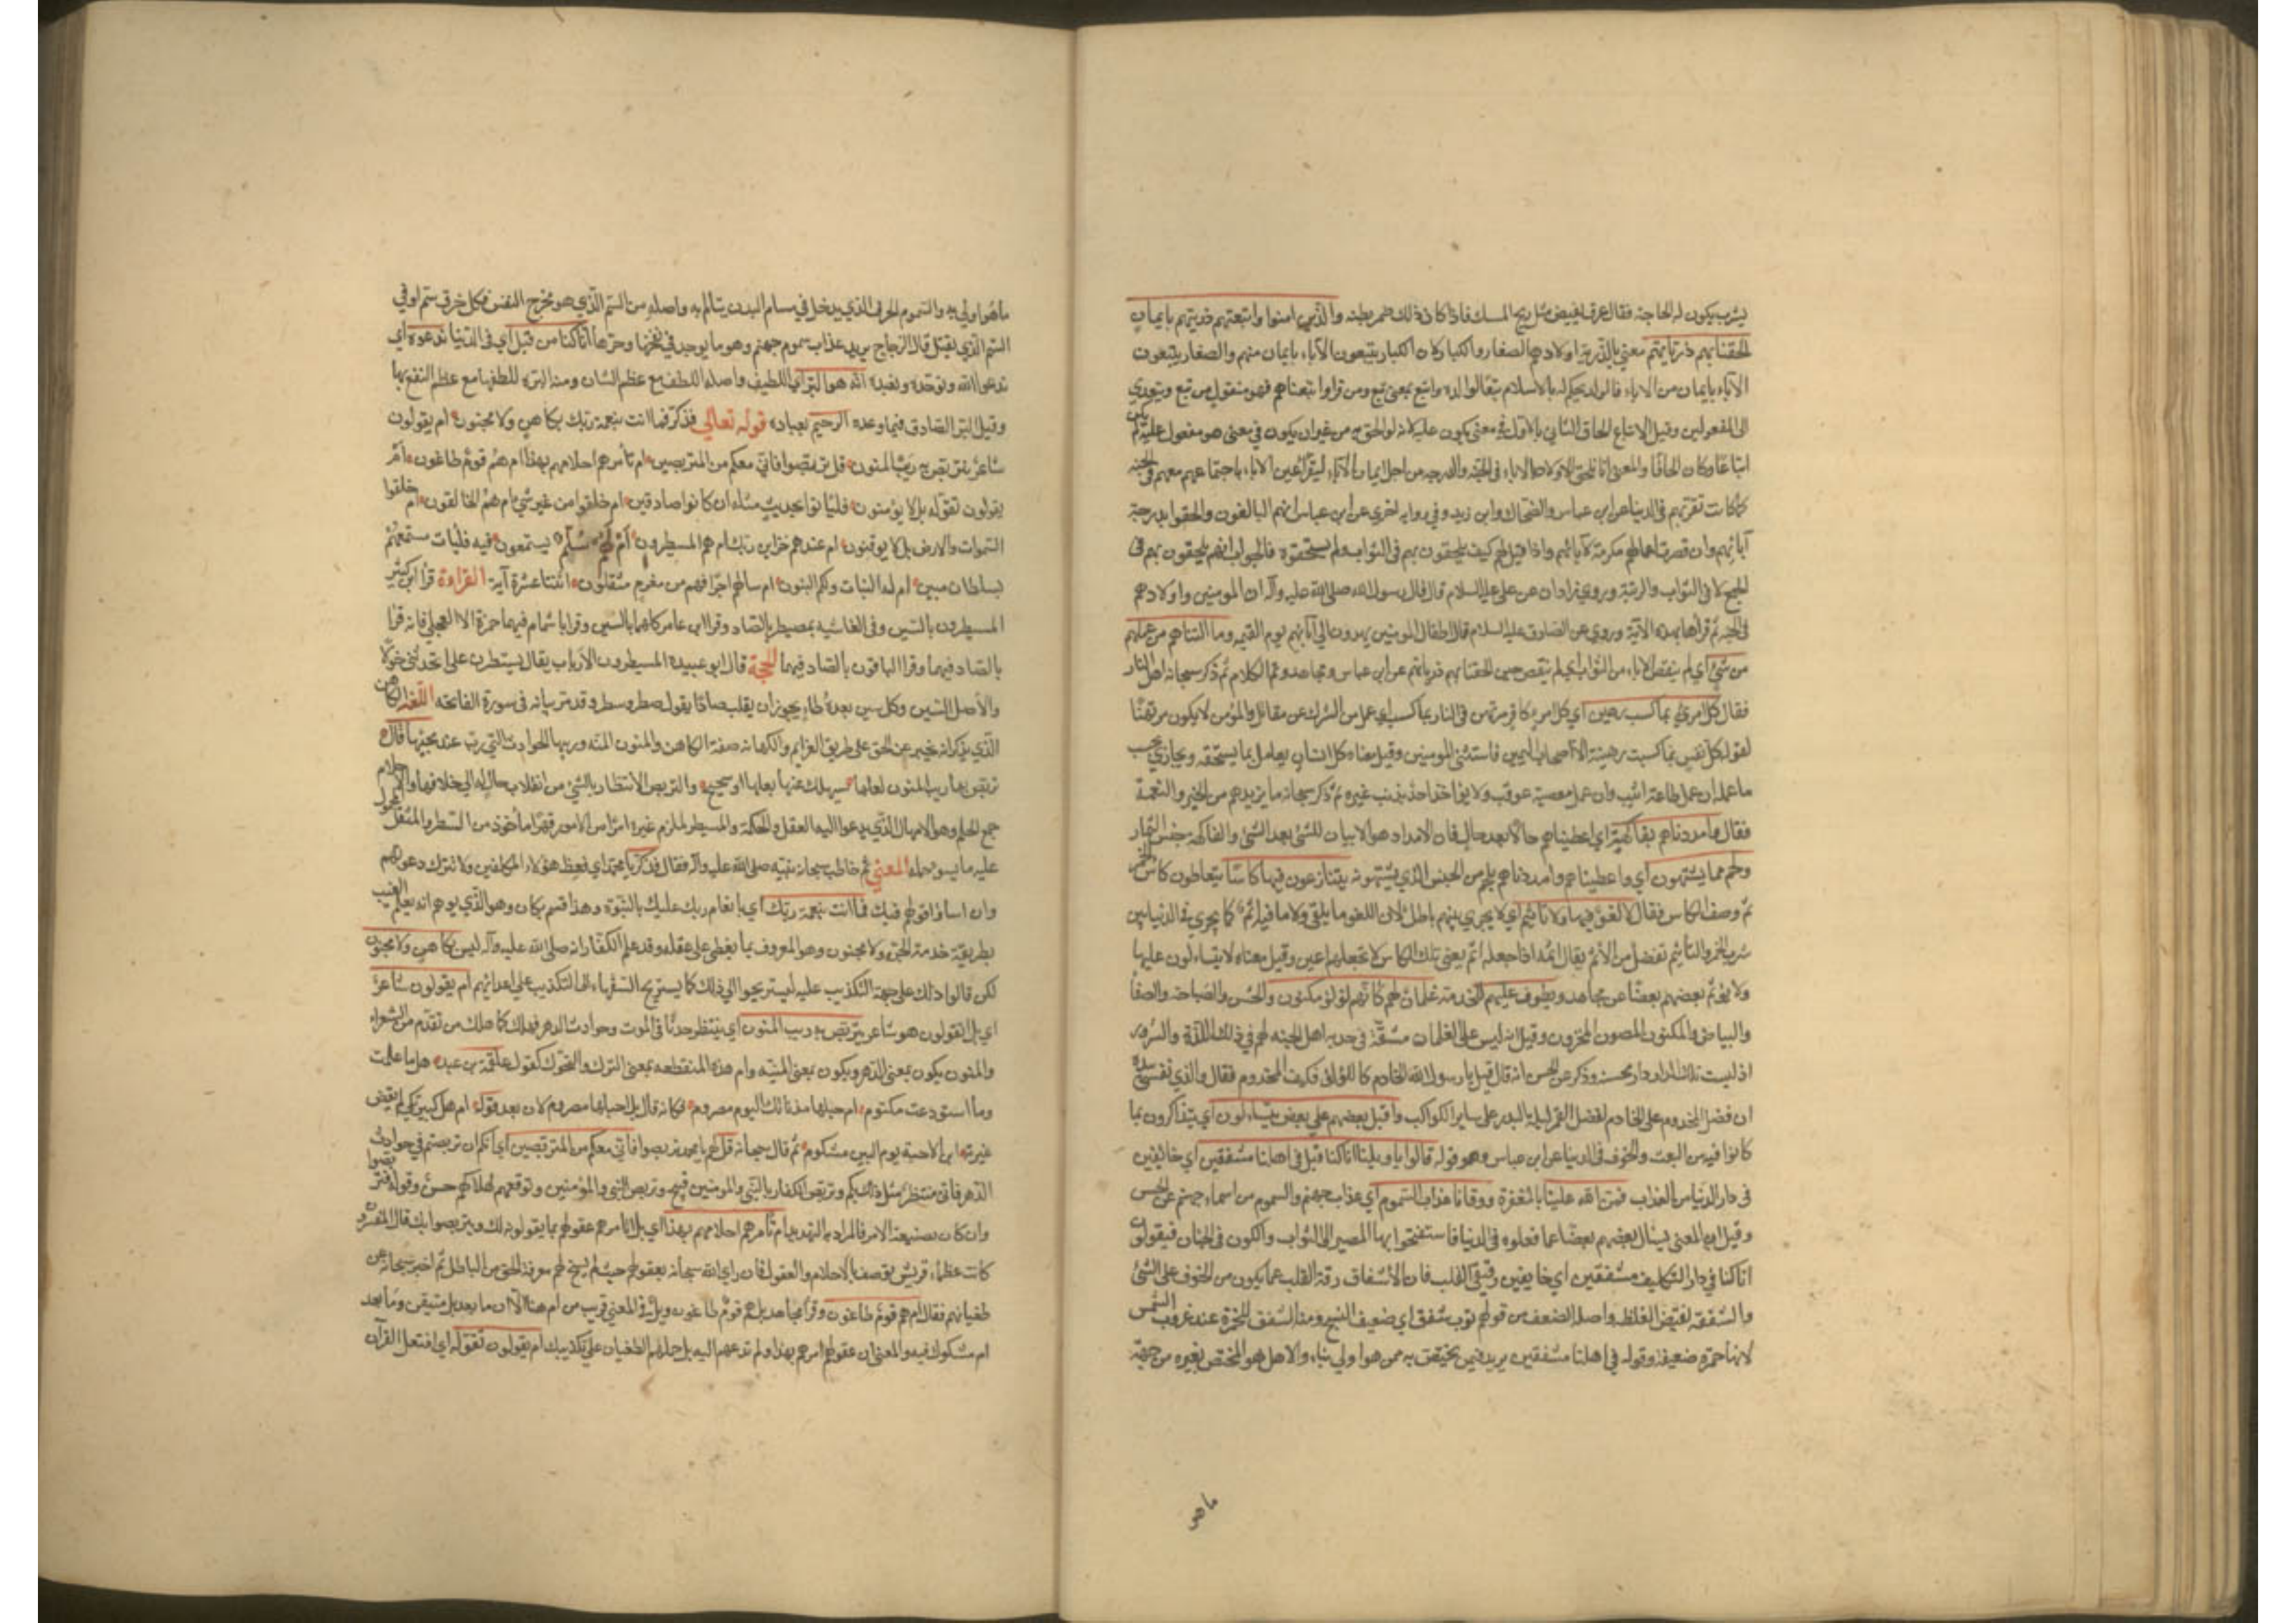 يشرب يكون له الحاجة فقال عرق يفيض مثل ريح المسك فاذا كان ذلك ضمر بطنه والذين امنوا واتبعتهم ذريتهم بايمان
الحقنا بهم ذرياتهم معنى بالذرية اولادهم الصغار والكبار لان الكبار يتبعون الآباء بايمان منهم والصغار يتبعون
الآباء بايمان من الاباء فالولد يحكم له بالاسلام تبعا لوالده واتبع بمعنى تبع ومن قرا واتبعناهم فهو منقول من تبع ويتعدى
الى المفعولين وقيل الاتباع الحاق الثاني بالاول في معنى يكون عليه لانه لو الحق به من غير ان يكون في معنى هو مفعول عليه لم يكن
اتباعا وكان الحاقا والمعنى انا نلحق الاولاد بالاباء في الجنة والدرجه من اجل ايمان الآباء ليقر اعين الاباء باجتماعهم معهم في الجنه
كما كانت تقر بهم في الدنيا عن ابن عباس والضحاك وابن زيد وفي رواية اخرى عن ابن عباس انهم البالغون والحقوا بدرجة
آبائهم وان قصرت اعمالهم تكرمة لآبائهم واذا قيل لهم كيف يلحقون بهم في الثواب ولم يستحقوه فالجواب انهم يلحقون بهم في
الجمع لا في الثواب والرتبة وروى زاذان عن علي عليه السلام قال قال رسول الله صلى الله عليه وآله ان المومنين واولادهم
في الجنه ثم قرا هذه الآية وروي عن الصادق عليه السلام قال اطفال المومنين يهدون الى آبائهم يوم القيمه وما التناهم من عملهم
من شئ اي لم ينقص الاباء من الثواب اي لم ينقص حين الحقنا بهم ذرياتهم عن ابن عباس ومجاهد وتم الكلام ثم ذكر سبحانه اهل النار
فقال كل امرئ بما كسب رهين اي كل امرء كافر مرتهن في النار بما كسب اي عمل من الشرك عن مقاتل والمؤمن لا يكون مرتهنا
لقوله كل نفس بما كسبت رهينة الا اصحاب اليمين فاستثنى المومنين وقيل معناه كل انسان يعامل بما يستحقه ويجازي بحسب
ما عمله ان عمل طاعة اثيب وان عمل معصية عوقب ولا يؤاخذ احد بذنب غيره ثم ذكر سبحانه ما يزيدهم من الخير والنعمة
فقال وامددناهم بفاكهة اي اعطيناهم حالا بعد حال فان الامداد هو الاتيان للشئ بعد الشئ والفاكهه جنس الثمار
ولحم مما يشتهون اي واعطيناهم وامددناهم بلحم من الجنس الذي يشتهونه يتنازعون فيها كاسا يتعاطون كاس الخمر
ثم وصف الكاس فقال لا لغو فيها ولا تاثيم اي لا يجري بينهم باطل لان اللغو ما يلقى ولا ما فيه اثم كما يجري في الدنيا بين
شرب الخمر والتأثيم تفعيل من الاثم يقال اثمه اذا جعله ذا اثم يعني تلك الكاس لا تجعلهم اثمين وقيل معناه لا يتسابون عليها
ولا يؤثم بعضهم بعضا عن مجاهد ويطوف عليهم للخدمة غلمان لهم كانهم لؤلؤ مكنون والحسن والصباحة والصفا
والبياض والمكنون المصون المخزون وقيل انه ليس على الغلمان مشقة في خدمة اهل الجنه لهم في ذلك اللذة والسرور
اذ ليست تلك الدار دار محنة وذكر عن الحسن انه قال قيل يا رسول الله الخادم كاللؤلؤ فكيف المخدوم فقال والذي نفسي بيده
ان فضل المخدوم على الخادم كفضل القمر ليلة البدر على ساير الكواكب واقبل بعضهم على بعض يتساءلون اي يتذاكرون بما
كانوا فيه من التعب والخوف في الدنيا عن ابن عباس وهو قوله قالوا انا كنا قبل في اهلنا مشفقين اي خائفين
في دار الدنيا من العذاب فمن الله علينا بالمغفرة ووقانا عذاب السموم اي عذاب جهنم والسموم من اسماء جهنم عن الحسن
وقيل ان المعنى يسأل بعضهم بعضا عما فعلوه في الدنيا فاستحقوا بها المصير الى الثواب والكون في الجنان فيقولون
انا كنا في دار التكليف مشفقين اي خايفين رقيقي القلب فان الاشفاق رقة القلب عما يكون من الخوف على الشئ
والشفقه نقيض الغلظه واصله الضعف من قولهم ثوب شفق اي ضعيف النسج ومنه الشفق للحمرة عند غروب الشمس
لانها حمرة ضعيفة وقوله في اهلنا مشفقين يريد فيمن يختص به ممن هو اولى بنا والاهل هو المختص بغيره من جهة
ما هو
ما هو اولى به والسموم الحر الذي يدخل في مسام البدن يتالم به واصله من السم الذي هو مخرج النفس فكل خرق سم او في
السم الذي يقتل قال الزجاج يريد عذاب سموم جهنم وهو ما يوجد في لفحها وحرها انا كنا من قبل اي في الدنيا ندعوه اي
ندعوا الله ونوحده ونعبده انه هو البر اي اللطيف واصله اللطف مع عظم الشان ومنه البر للطفها مع عظم النفع بها
وقيل البر الصادق فيما وعده الرحيم بعباده قوله تعالى فذكر فما انت بنعمة ربك بكاهن ولا مجنون ام يقولون
شاعر نتربص به ريب المنون قل تربصوا فاني معكم من المتربصين ام تأمرهم احلامهم بهذا ام هم قوم طاغون ام
يقولون تقوله بل لا يؤمنون فليأتوا بحديث مثله ان كانوا صادقين ام خلقوا من غير شئ ام هم الخالقون ام خلقوا
السموات والارض بل لا يوقنون ام عندهم خزاين ربك ام هم المسيطرون ام لهم سلم يستمعون فيه فليأت مستمعهم
بسلطان مبين ام له البنات ولكم البنون ام تسالهم اجرا فهم من مغرم مثقلون اثنتا عشرة آية القراءة قرا ابن كثير
المسيطرون بالسين وفي الغاشيه بمصيطر بالصاد وقرا ابن عامر كلاهما بالسين وقرا باشمام فيهما حمزة الا العجلي فانه قرا
بالصاد فيهما وقرا الباقون بالصاد فيهما الحجة قال ابو عبيدة المسيطرون الارباب يقال تسيطرت علي اتخذتني خولا
والاصل السين وكل سين بعدها طاء يجوز ان يقلب صادا يقول صطر وسطر وقد مر بيانه في سورة الفاتحه اللغة الكاهن
الذي يذكر انه يخبر عن الحق على طريق العزايم والكهانه صفة الكاهن والمنون المنيه وريبها الحوادث التي تريب عند مجيئها قال
تربص بها ريب المنون لعلها سيهلك عنها بعلها او سيجنح والتربص الانتظار بالشئ من انقلاب حال له الى خلافها والاحلام
جمع الحلم وهو الامهال الذي يدعو اليه العقل والحكمة والمسيطر الملزم غيره امرا من الامور قهرا مأخوذ من السطر والمثقل المحمول
عليه ما يسوء حمله المعنى ثم خاطب سبحانه نبيه صلى الله عليه وآله فقال فذكر يا محمد اي فعظ هؤلاء المكلفين ولا تترك دعوتهم
وان اساؤا قولهم فيك فما انت بنعمة ربك اي بانعام ربك عليك بالنبوة وهذا قسم بكاهن وهو الذي يوهم انه يعلم الغيب
بطريقة خدمة الجن ولا مجنون وهو المعروف بما يغطي على عقله وقد علم الكفار انه صلى الله عليه وآله ليس بكاهن ولا مجنون
لكن قالوا ذلك على جهة التكذيب عليه ليستريحوا الى ذلك كما يستريح السفهاء الى التكذيب على اعدائهم ام يقولون شاعر
اي بل ايقولون هو شاعر نتربص به ريب المنون اي ننتظر حدثان الموت وحوادث الدهر فيهلك كما هلك من تقدم من الشعراء
والمنون يكون بمعنى الدهر ويكون بمعنى المنيه وام هذه المنقطعه بمعنى الترك والتحول كقول علقمة بن عبدة هل ما علمت
وما استودعت مكتوم ام حبلها مذ نأتك اليوم مصروم فكانه قال بل احبلها مصروم لان بعده قوله ام هل كبير بكى لم يقض
عبرته اثر الاحبة يوم البين مشكوم ثم قال سبحانه قل لهم يا محمد تربصوا فاني معكم من المتربصين اي انكم ان تربصتم في حوادث
الدهر فاني منتظر مثل ذلك بكم وتربص الكفار بالنبي والمومنين قبيح وتربص النبي والمؤمنين وتوقعهم لهلاكهم حسن وقوله تربصوا
وان كان بصيغة الامر فالمراد به التهديد ام تأمرهم احلامهم بهذا اي بل اتامرهم عقولهم بما يقولونه لك ويتربصوا بك قال المفسرون
كانت عظماء قريش توصف بالاحلام والعقول فازرى الله سبحانه بعقولهم حيث لم تنتج لهم معرفة الحق من الباطل ثم اخبر سبحانه عن
طغيانهم فقال ام هم قوم طاغون وقرا مجاهد بل هم قوم طاغون وبل في المعنى قريب من ام هنا الا ان ما بعد بل متيقن وما بعد
ام مشكوك فيه والمعنى ان عقولهم لم تامرهم بهذا ولم تدعهم اليه بل حملهم الطغيان على تكذيبك ام يقولون تقوله اي افتعل القرآن